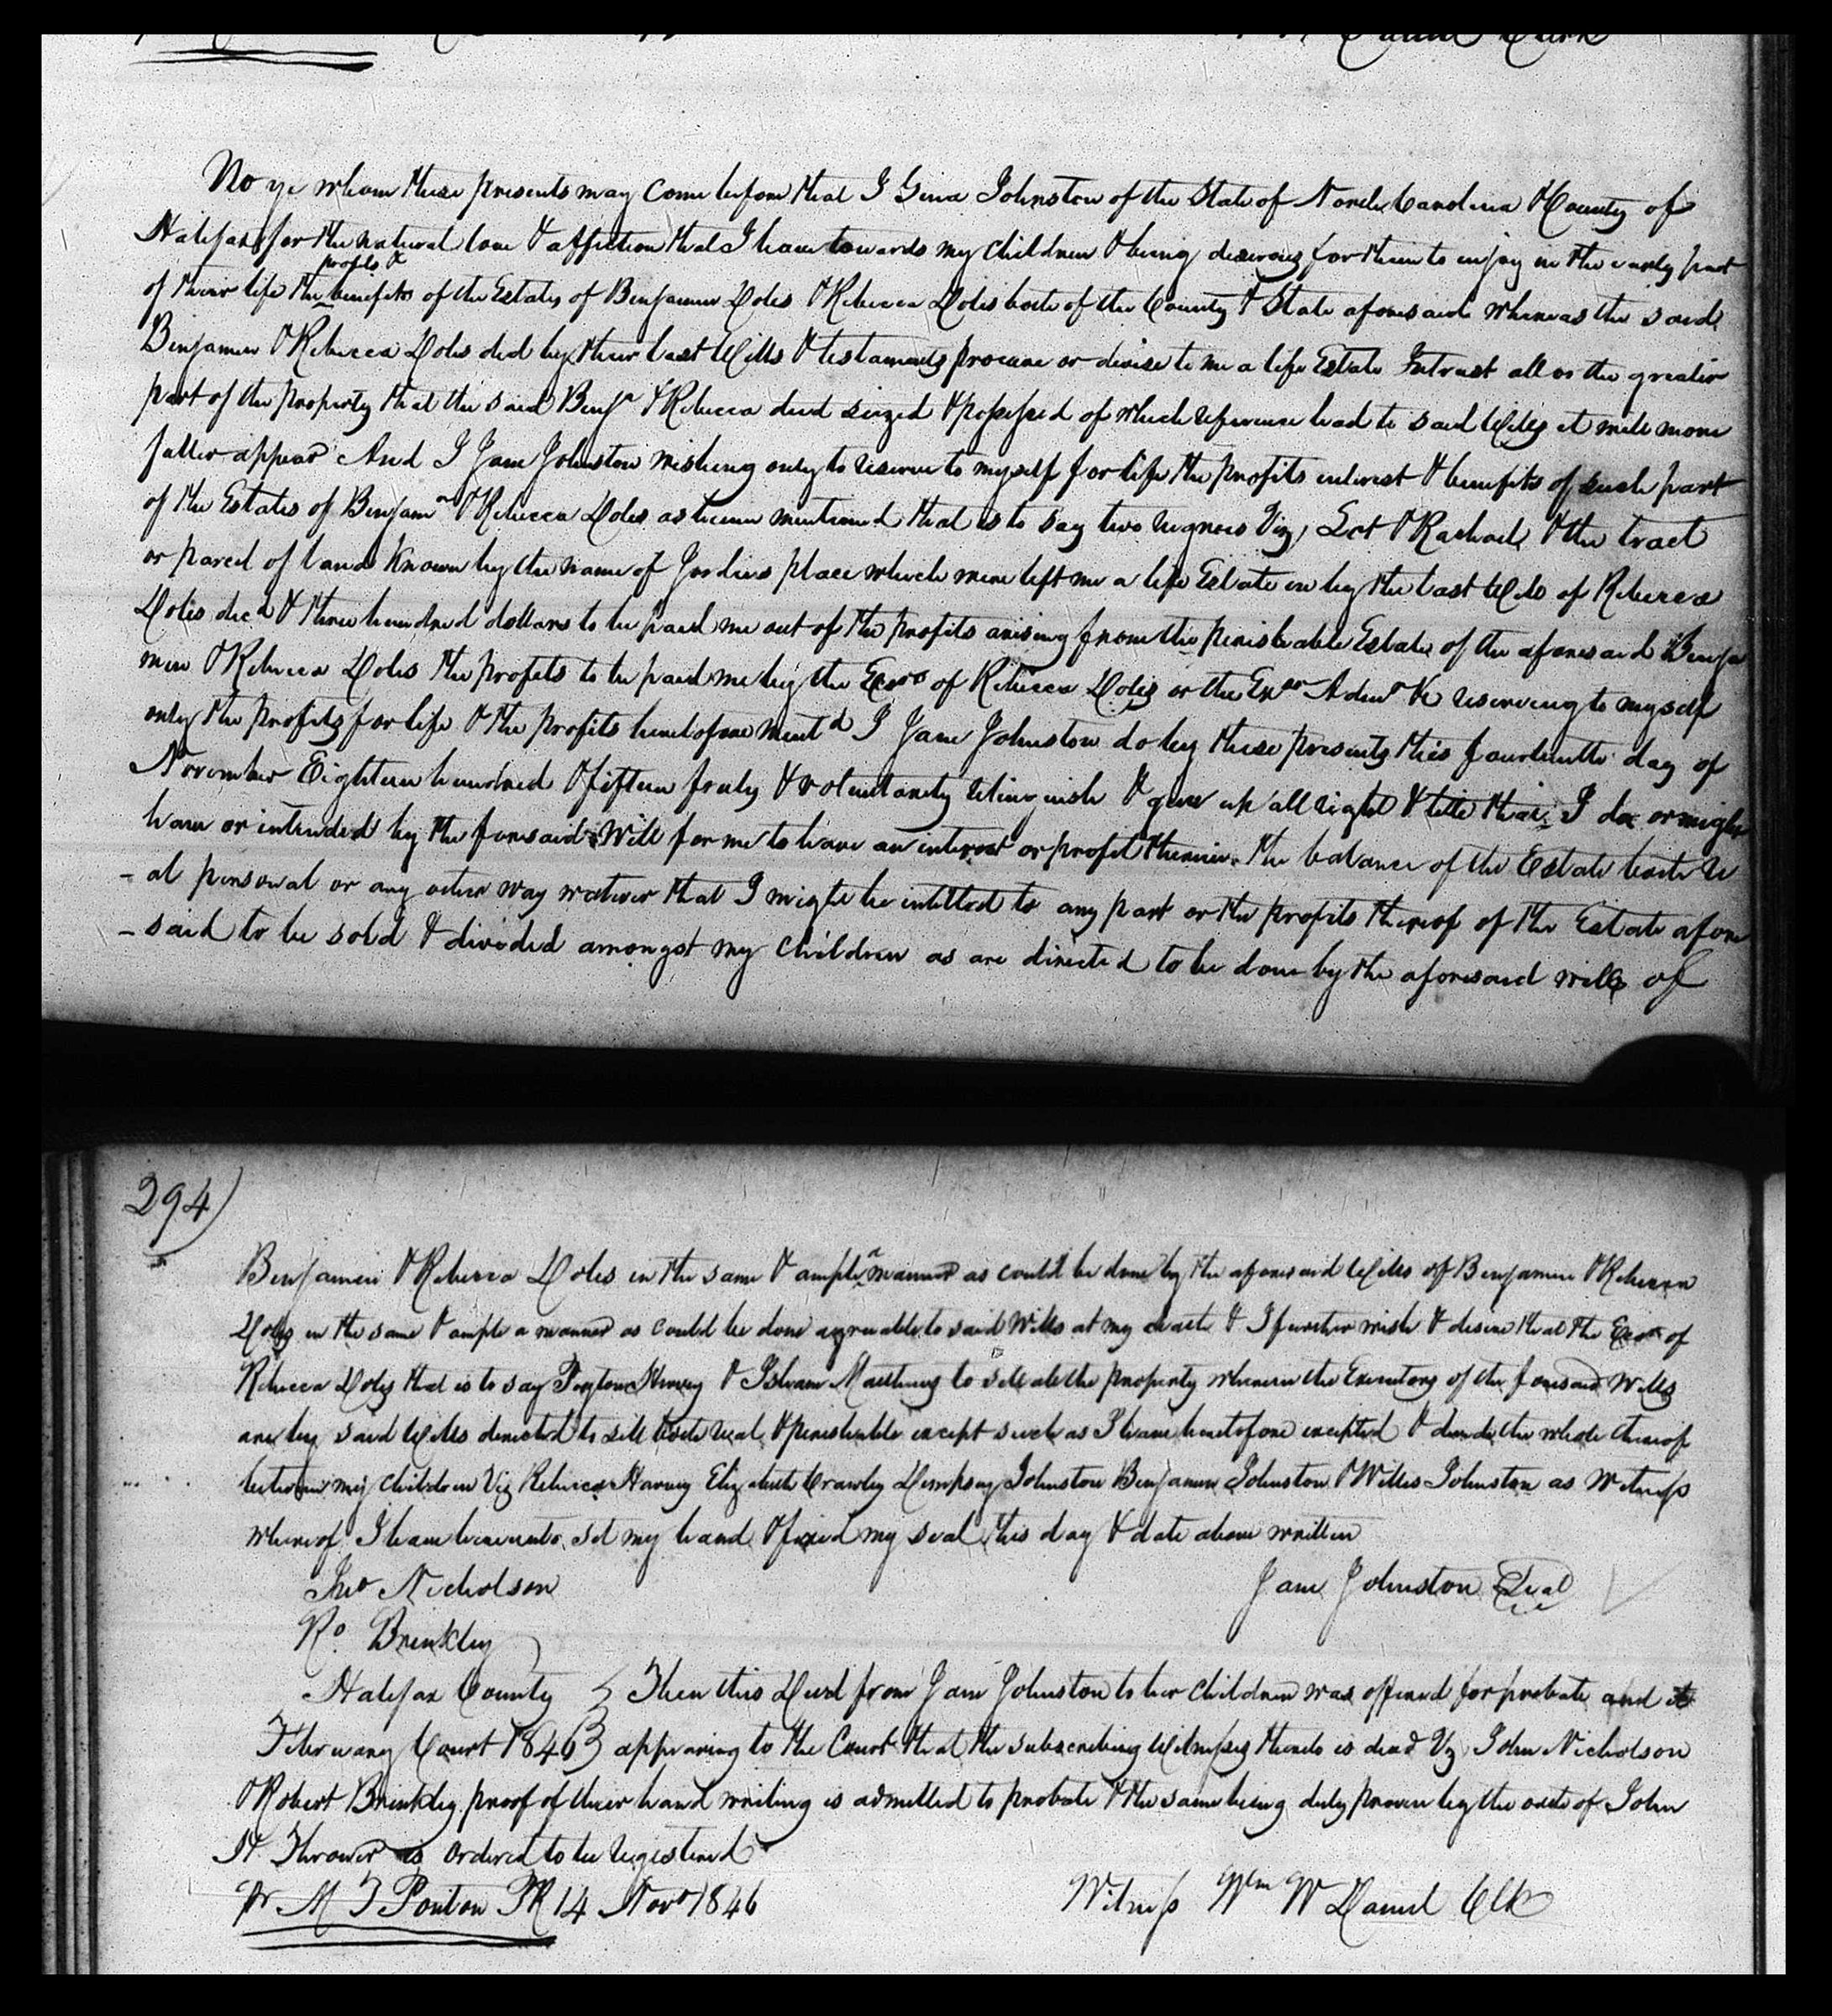 Daniel Clerk
No ye whom these presents may come before that I Gena Johnston of the State of North Carolina & County of
Halifax for the natural love & affection that I have towards my children & being desirous for them to enjoy in the early part
of their life the profits & benefits of the Estates of Benjamin Doles & Rebecca Doles both of the County & State aforesaid whereas the said
Benjamin & Rebecca Doles did by their last Wills & testaments procure or devise to me a life Estate Intrust all or the greater
part of the property that the said Benjn & Rebecca died seized & possessed of which reference had to said Wills it will more
fuller appear And I Jane Johnston wishing only to reserve to myself for life the profits interest & benefits of such part
of the Estates of Benjamn & Rebecca Doles as herein mentioned that is to say two negroes Viz, Lot & Rachael & the tract
or parcel of land Known by the name of Jordins place which were left me a life Estate in by the last Will of Rebecca
Doles decd & three hundred dollars to be paid me out of the profits arising from the perishable Estate of the aforesaid Benja
min & Rebecca Doles the profits to be paid me by the Exors of Rebecca Doles or the Exor Admr &c reserving to myself
only the profits for life & the profits heretofore mentd I Jane Johnston do by these presents this fourteenth day of
November Eighteen hundred & fifteen fruly & voluntarily relinquish & give up all right & title that I do or might
have or intended by the foresaid Will for me to have an interest or profit therein. The balance of the Estate both re
- al personal or any other way wathever that I might be intitled to any part or the profits thereof of the Estate afore
- said to be sold & divided amongst my children as are directed to be done by the aforesaid wills of
294)
Benjamin & Rebecca Doles in the same & ample a manner as could be done by the aforesaid Wills of Benjamin & Rebecca
Doles in the same & ample a manner as could be done agreeable to said Wills at my death & I further wish & desire that the Exors of
Rebecca Doles that is to say Peyton Harvey & Isham Matthews to sell all the property wherein the Executors of the foresaid Wills
are by said Wills directed to sell both real & perishable except such as I have heretofore excepted & divide the whole thereof
between my children Viz Rebecca Harvey Elizabeth Crawley Dempsey Johnston Benjamin Johnston & Willis Johnston as Witness
whereof I have hereunto set my hand & fixed my seal this day & date above written
Jno Nicholson Jane Johnston Seal
Ro. Brinkley
Halifax County } Then this Deed from Jane Johnston to her children was offered for probate and it
February Court 1846 } appearing to the Court that the subscribing Witnesses thereto is dead Vz John Nicholson
& Robert Brinkley proof of their hand writing is admitted to probate & the same being duly proven by the oath of John
H Thrower is ordered to be registered
pr M T Ponton PR 14 Novr 1846 Witness Wm W Daniel Clk